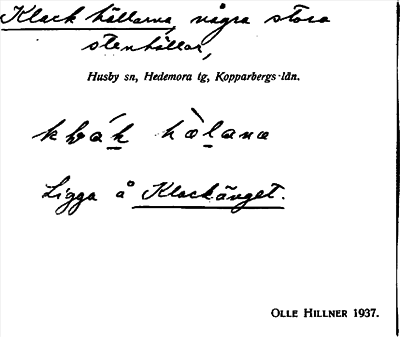 Klackhällarna, några stora
stenhällar,
Husby sn, Hedemora tg, Kopparbergs län.
Ligga å Klackänget.
OLLE HILLNER 1937.